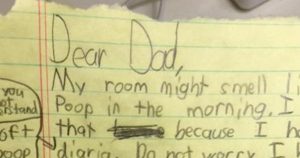 Dear Dad,
My room might smell li
Poop in the morning. I
that because I h
diaria. Do not worry I h
you
not
erstand
oft
poop